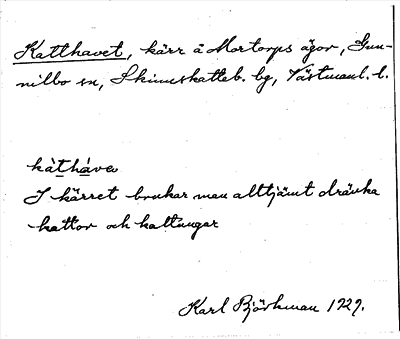 Katthavet, kärr å Mortorps ägor, Gun-
nilbo sn, Skinnskatteb. bg, Västmanl. l.
kàthávø
I kärret brukar man alltjämt dränka
kattor och kattungar
Karl Björkman 1929.